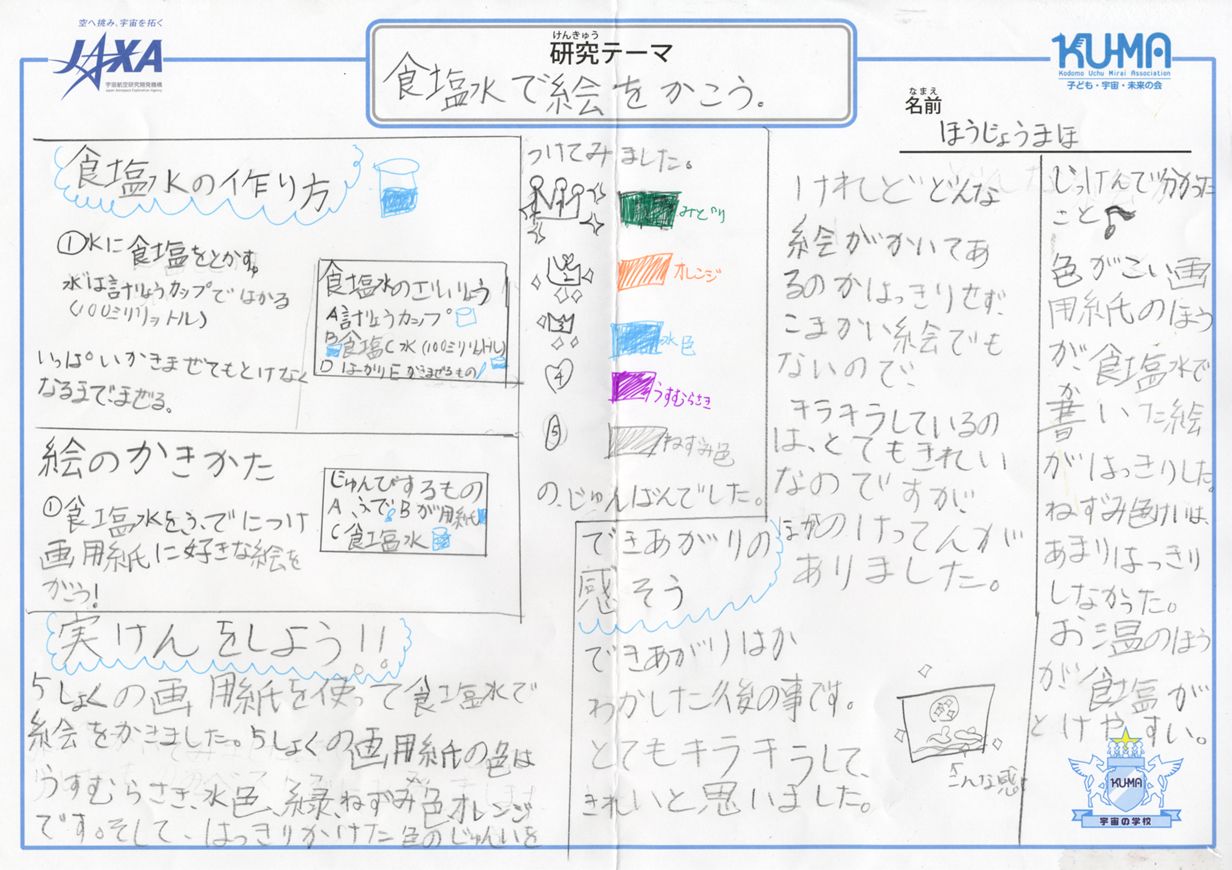 空へ挑み、宇宙を拓く
JAXA
宇宙航空研究開発機構
Japan Aerospace Exploration Agency
けんきゅう
研究テーマ
食塩水で絵をかこう。
KU-MA
Kodomo Uchu Mirai Association
子ども・宇宙・未来の会
なまえ
名前
ほうじょうまほ
食塩水の作り方
①水に食塩をとかす
水は計りょうカップではかる
(100ミリリットル)
いっぱいかきまぜてもとけなく
なるまでまぜる。
食塩水のざいりょう
A計りょうカップ
B食塩C水(100ミリリットル)
DはかりEかまぜるもの
絵のかきかた
①食塩水をふでにつけ
画用紙に好きな絵を
がこう!
じゅんびするもの
AふでBが用紙
C食塩水
実けんをしよう!!
5しょくの画用紙を使って食塩水で
絵をかきました。5しょくの画用紙の色は
うすむらさき、水色、緑、ねずみ色、オレンジ
です。そして、はっきりかけた色のじゅんいを
つけてみました。
みどり
オレンジ
水色
4
うすむらさき
5
ねずみ色
の、じゅんばんでした。
できあがりの
感そう
できあがりはか
わかした後の事です。
とてもキラキラして、
きれいと思いました。
けれどどんな
絵がかいてあ
るのかはっきりせず、
こまかい絵でも
ないので、
キラキラしているの
は、とてもきれい
なのですが、
ほかのけってんが
ありました。
こんな感じ
じっけんで分かった
こと♪
色がこい画
用紙のほう
が、食塩水で
か
書いた絵
がはっきりした。
ねずみ色けいは、
あまりはっきり
しなかった。
お温のほう
が食塩が
とけやすい。
KUMA
宇宙の学校